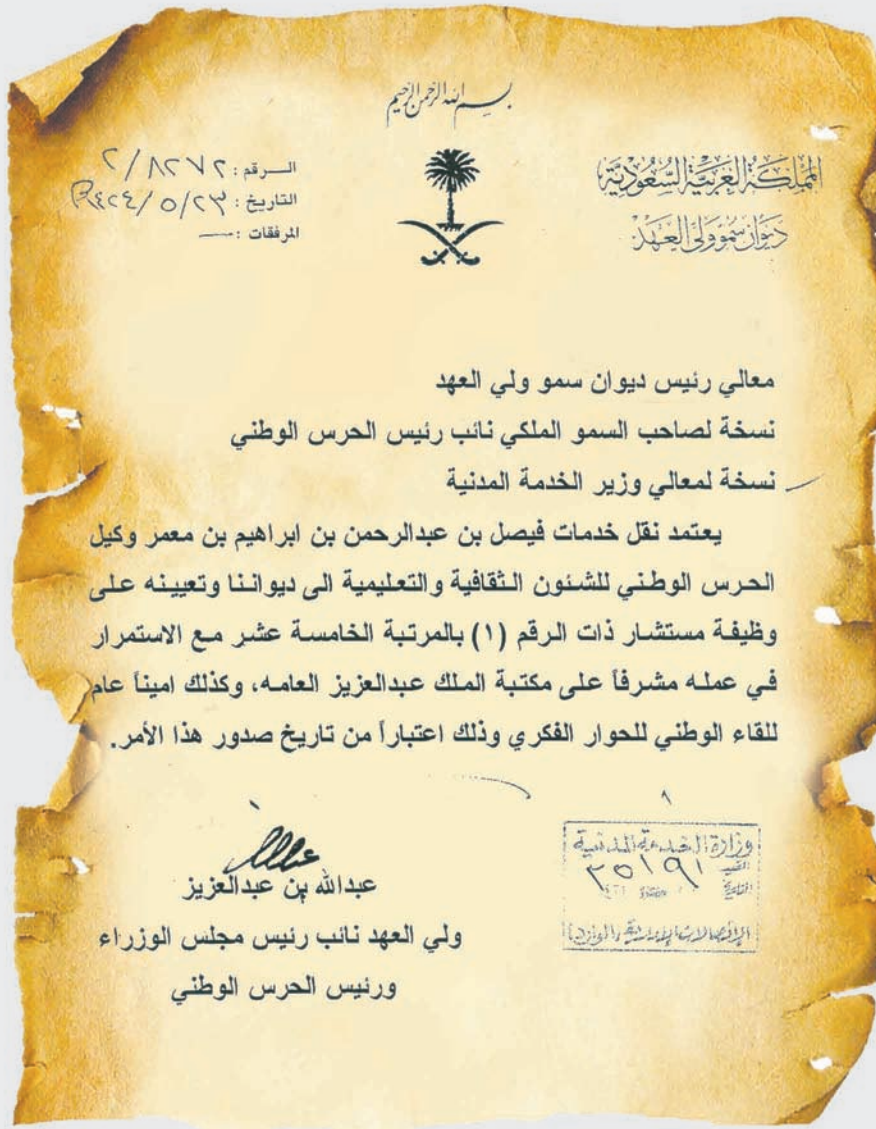 بسم الله الرحمن الرحيم
المملكة العربية السعودية
ديوان سمو ولي العهد
الـرقم : ٢/٨٢٧٢
التاريخ : ١٤٢٤/٥/٢٣هـ
المرفقات : —
معالي رئيس ديوان سمو ولي العهد
نسخة لصاحب السمو الملكي نائب رئيس الحرس الوطني
نسخة لمعالي وزير الخدمة المدنية
يعتمد نقل خدمات فيصل بن عبدالرحمن بن ابراهيم بن معمر وكيل
الحرس الوطني للشئون الثقافية والتعليمية الى ديواننا وتعيينه على
وظيفة مستشار ذات الرقم (١) بالمرتبة الخامسة عشر مع الاستمرار
في عمله مشرفاً على مكتبة الملك عبدالعزيز العامه، وكذلك اميناً عام
للقاء الوطني للحوار الفكري وذلك اعتباراً من تاريخ صدور هذا الأمر.
عبدالله بن عبدالعزيز
ولي العهد نائب رئيس مجلس الوزراء
ورئيس الحرس الوطني
وزارة الخدمة المدنية
القيد ٣٥١٩١
التاريخ
الإتصالات الإدارية (الوارد)